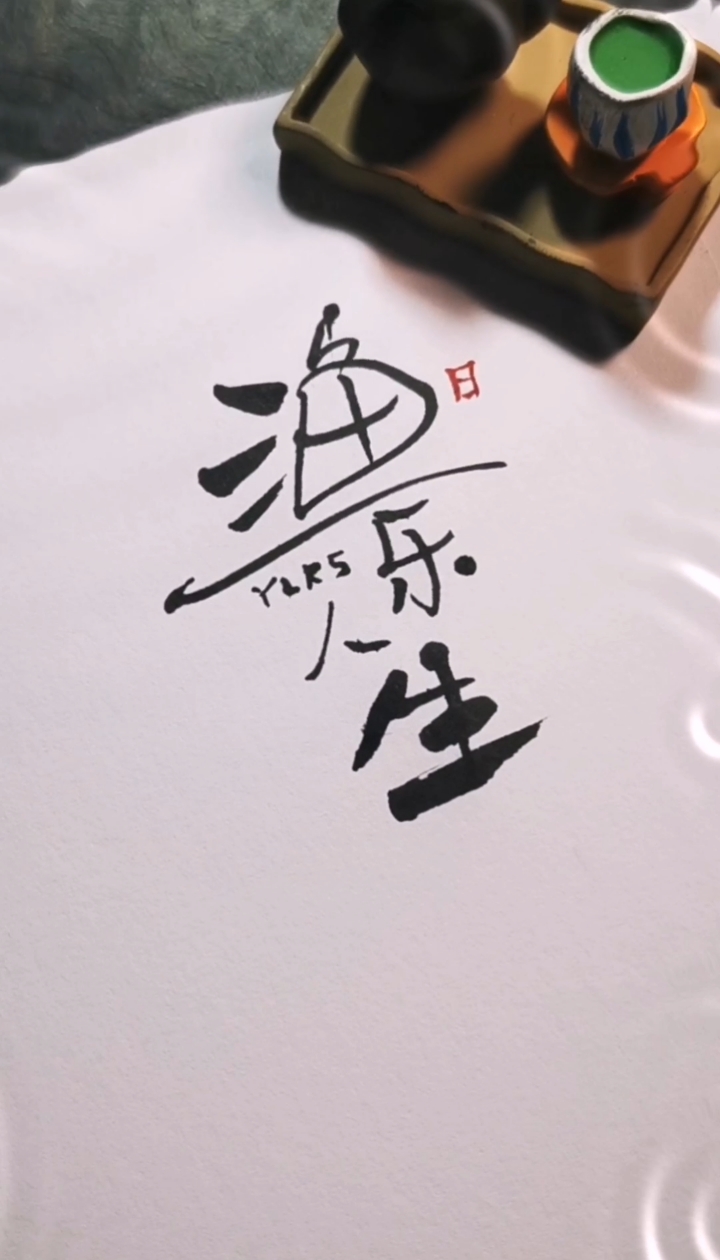 渔
乐
YLRS
人
生
日